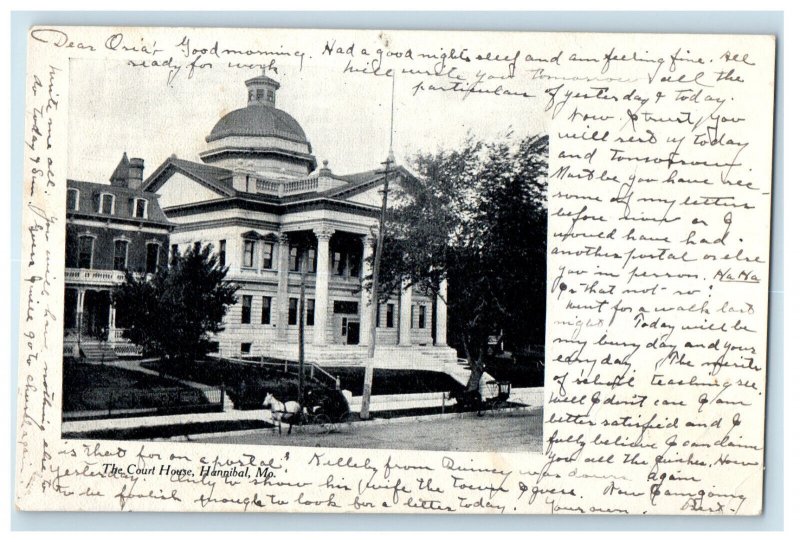 Dear Osia - Good morning. Had a good nights sleep and am feeling fine. All
ready for work Will write you tomorrow all the
particulars of yesterday & today.
Now I trust, you
will rest up today
and tomorrow.
Must be you have rec-
some of my letters
before now or I
would have had
another postal or else
you in person. Ha Ha
Is that not so?
Went for a walk last
night. Today will be
my busy day and your
easy day. The merits
of school teaching see.
Well I don't care I am
better satisfied and I
fully believe I can claim
you all the quicker. Now
is that for a postal.
Killeby from Quincy was down again
The Court House, Hannibal, Mo.
yesterday. Only to show his wife the town I guess. Now I am going
to be foolish enough to look for a letter today. Your own. Bert -
Write me all. You will have nothing else to
do today & Sun
I guess I will go to church again